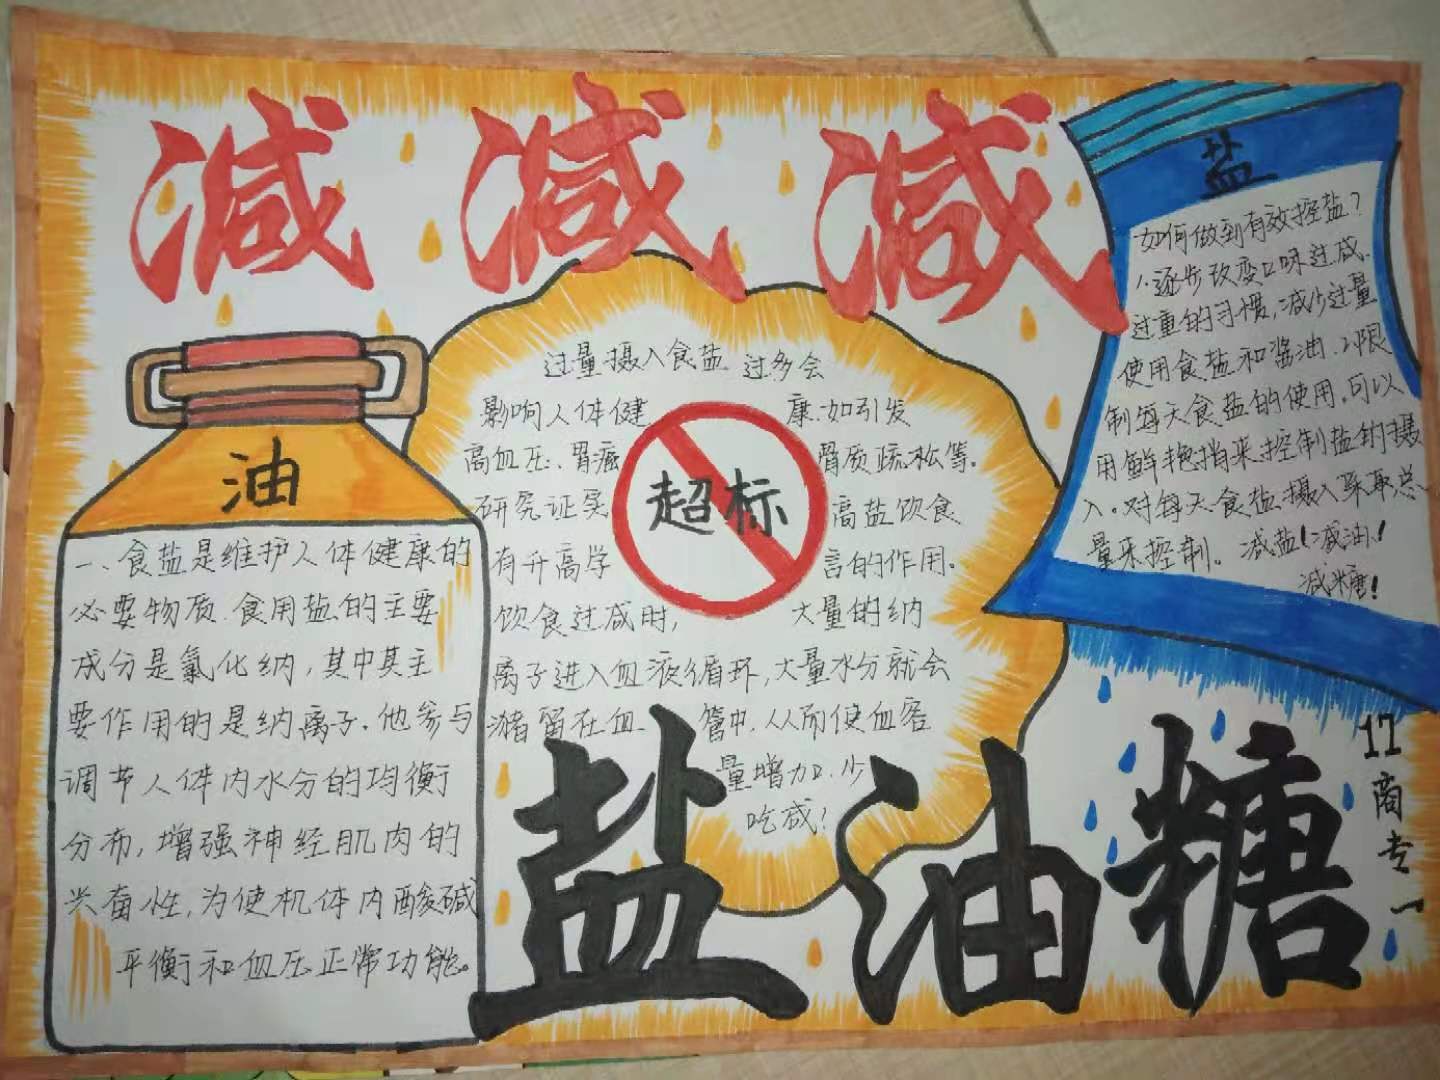 减 减 减
油
一、食盐是维护人体健康的
必要物质.食用盐的主要
成分是氯化纳,其中其主
要作用的是纳离子.他参与
调节人体内水分的均衡
分布,增强神经肌肉的
兴奋性,为使机体内酸碱
平衡和血压正常功能。
过量摄入食盐 过多会
影响人体健 康.如引发
高血压、胃癌 骨质疏松等.
研究证实 高盐饮食
有升高学 言的作用.
饮食过咸时, 大量的纳
离子进入血液循环,大量水分就会
潴留在血 管中.从而使血容
量增加.少
吃咸!
超标
盐
如何做到有效控盐?
1.逐步改变口味过咸、
过重的习惯,减少过量
使用食盐和酱油.2.限
制每天食盐的使用.可以
用鲜艳指来控制盐的摄
入。对每天食盐摄入采取总
量来控制。减盐!减油!
减糖!
盐 油 糖
17
商
专
一